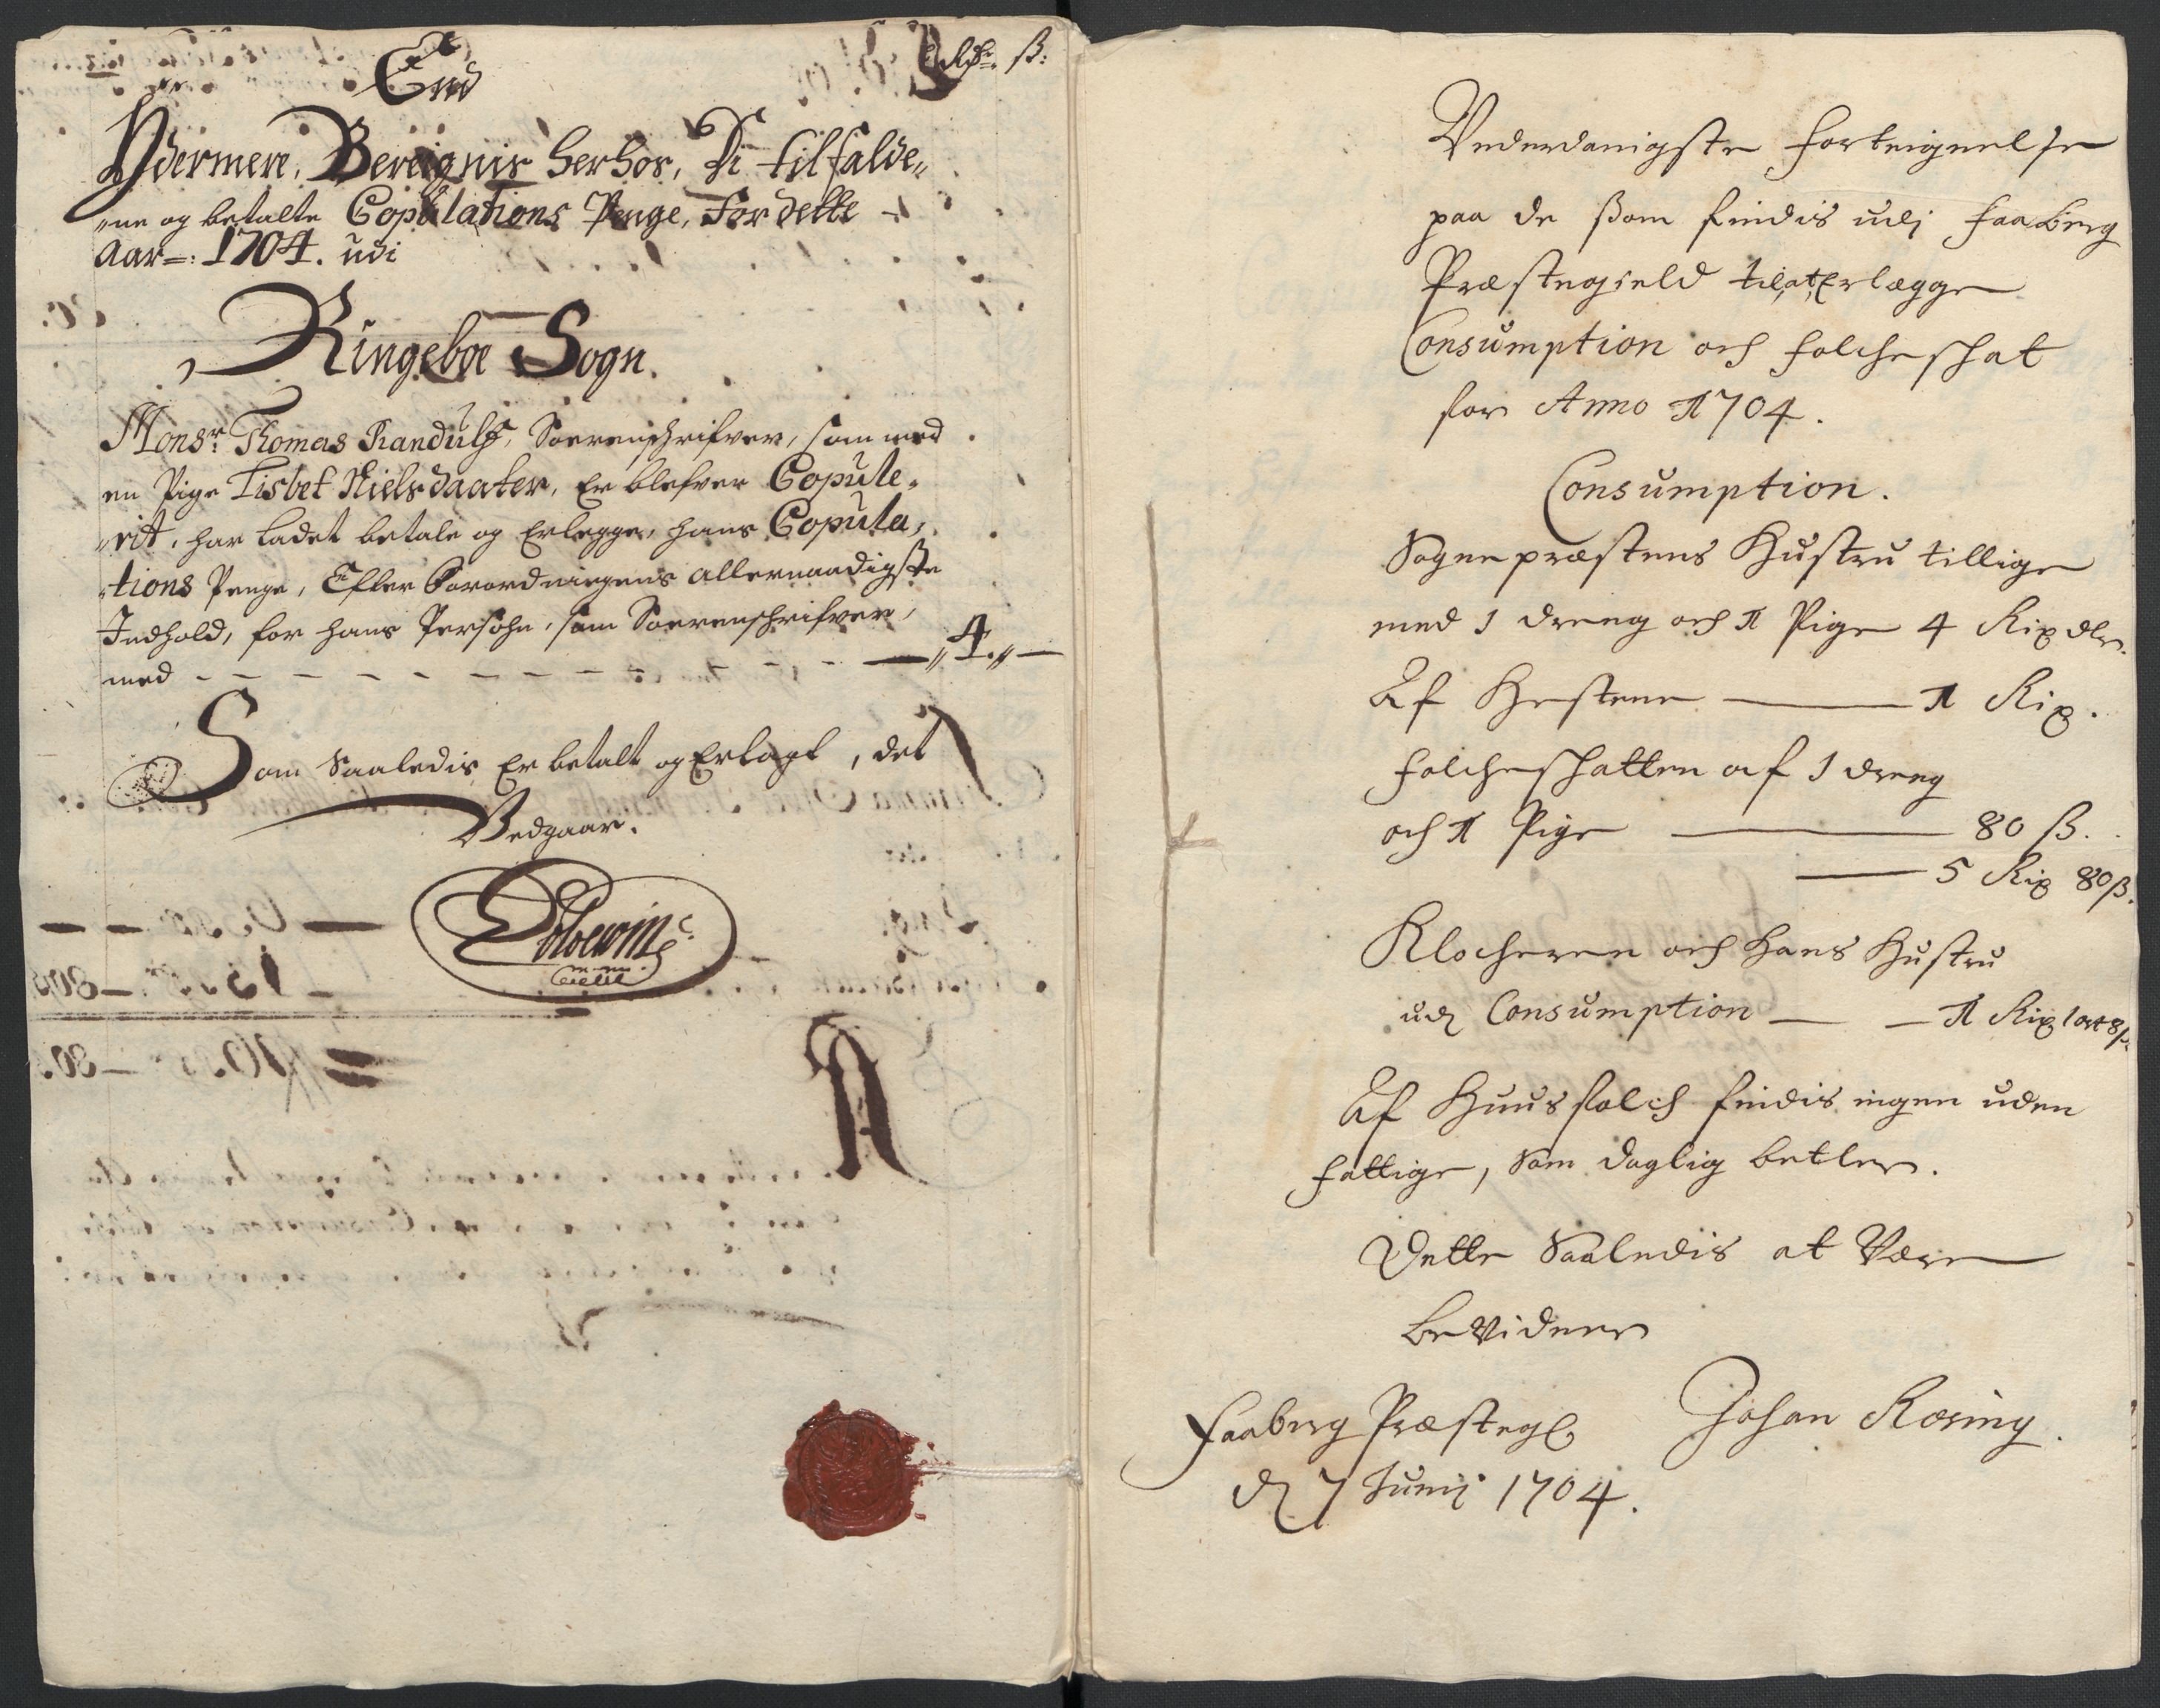 End
Rdr. ß:
Ydermere, Bereignis herhos, Di tilfalde„
„ne og betalte Copulations Penge, For dette
Aar=: 1704. udi
Ringeboe Sogn.
Monsr: Thomas Randulf, Sorenschrifver, som med
en Pige Lisbet Nielsdaater, Er blefven Copule„
„rit, har ladet betale og Erlegge, hans Copula„
„tions Penge, Efter Forordningens allernaadigste
Indhold, for hans Persohn, som Sorenschrifver,
med - - - - - - - - - - „ 4. „ —
Som Saaledis Er betalt og Erlagt, det
Vedgaar.
Vnderdanigste Forteignelse
paa de ßom findis udj Faaberg
Præstegield til at Erlægge
Consumption och Folcheschat
for Anno 1704.
Consumption.
Sognepræstens Hustru tillige
med 1 dreng och 1 Pige 4 Rix dlr.
Af Hestene — 1 Rix.
Folcheschatten af 1 dreng
och 1 Pige — 80 ß.
— 5 Rix 80 ß.
Klocheren och Hans Hustru
udj Consumption — — 1 Rix 1 ort 8 ß
Af Huusfolch findis ingen uden
Fattige, Som daglig betler.
Dette Saaledis at Være
beVidner
Faaberg Præstegl Johan Koring.
d 7 Junij 1704.